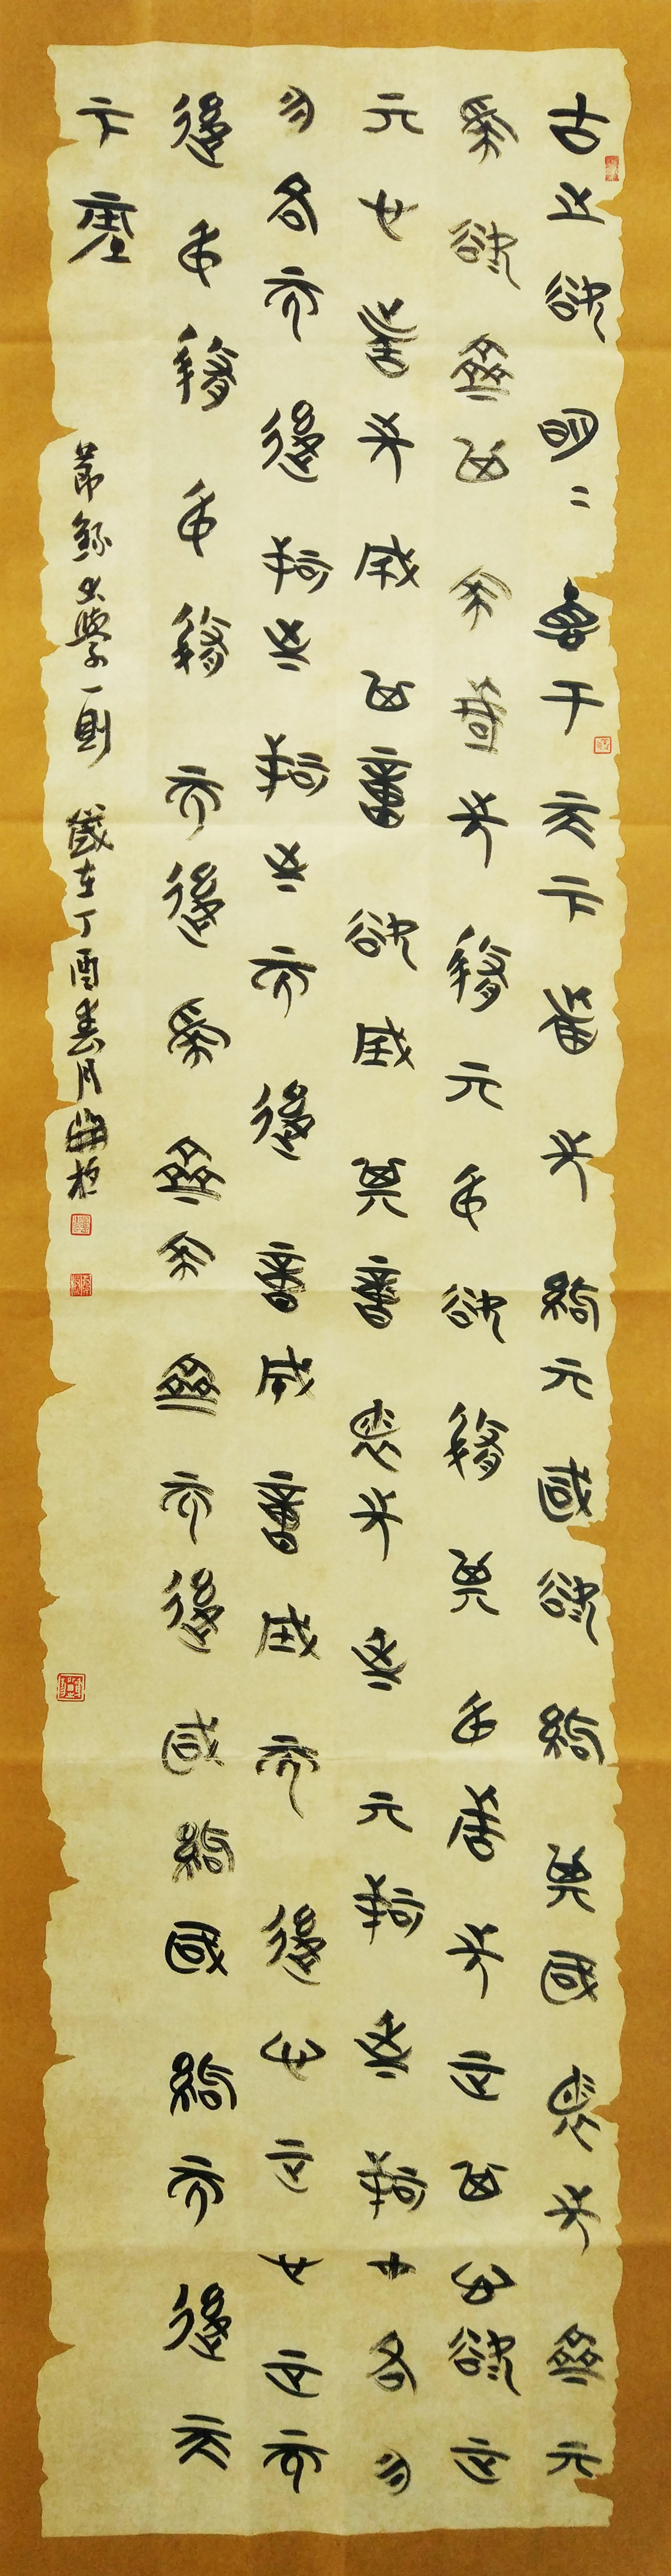 古之欲明二德于天下者先治其國欲治其國者先齊其
家欲齊其家者先修其身欲修其身者先正其心欲正
其心者先誠其意欲誠其意者先致其知致知在格物
物格而後知至知至而後意誠意誠而後心正心正而
後身修身修而後家齊家齊而後國治國治而後天
下平
節錄大學一則 歲在丁酉春月